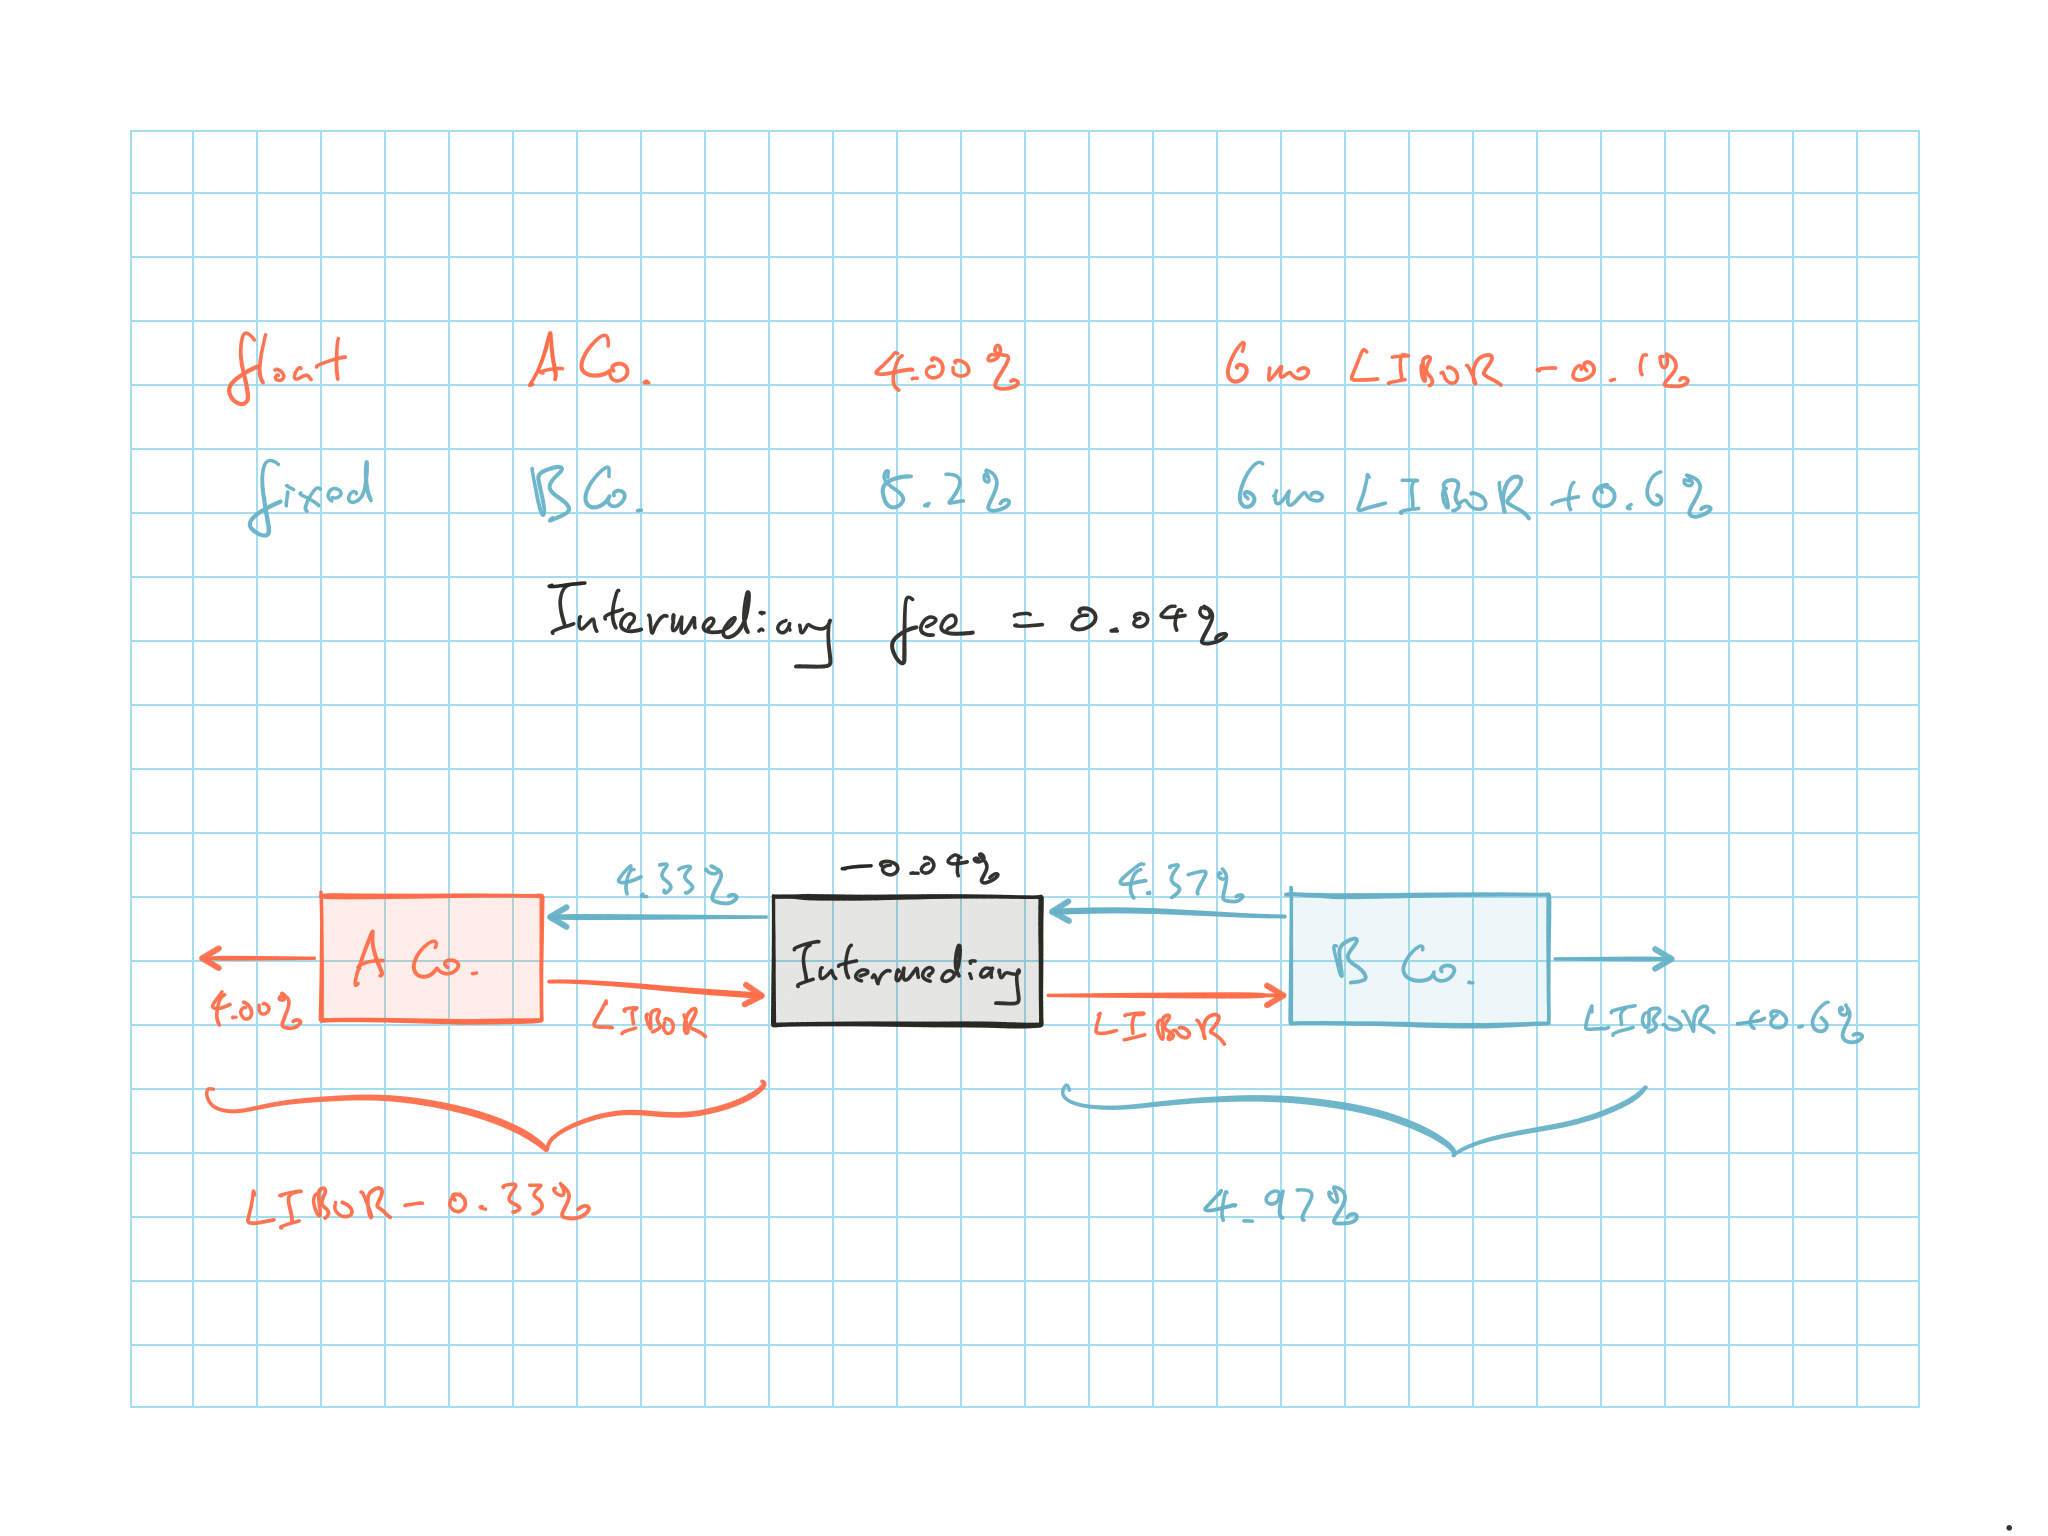 float A Co. 4.00% 6 mo LIBOR -0.1%
fixed B Co. 5.2% 6 mo LIBOR +0.6%
Intermediary fee = 0.04%
4.33% -0.04% 4.37%
A Co. Intermediary B Co.
4.00% LIBOR LIBOR LIBOR +0.6%
LIBOR - 0.33% 4.97%